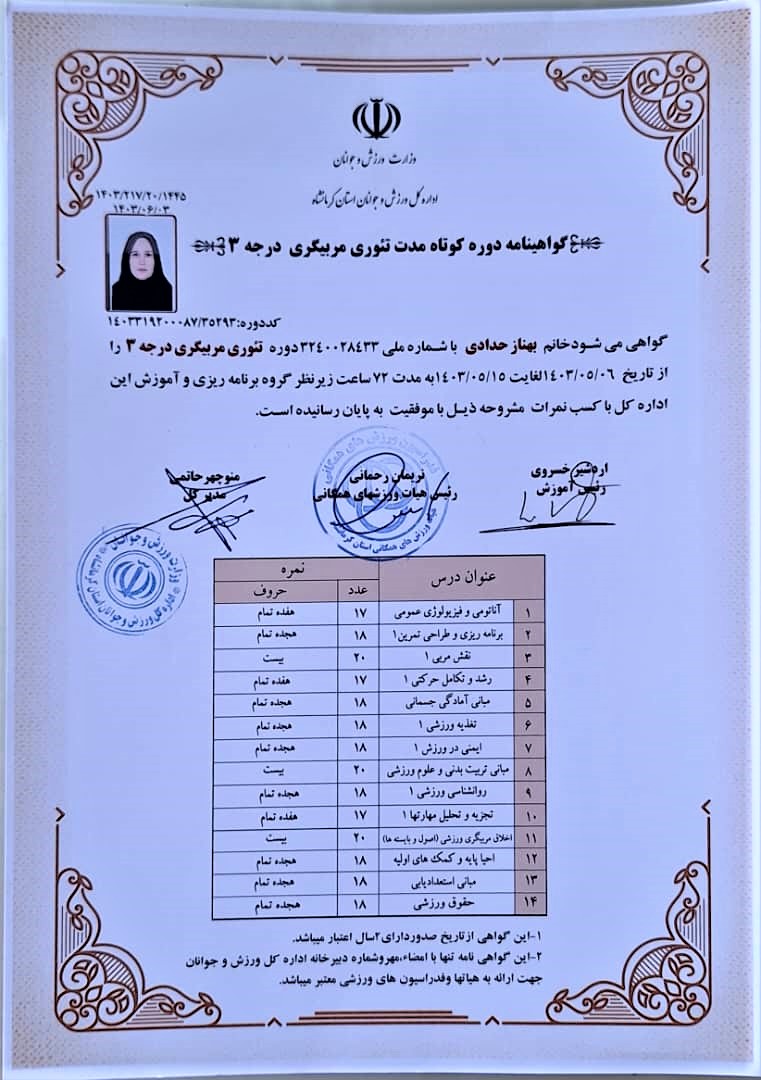 وزارت ورزش و جوانان
اداره کل ورزش و جوانان استان کرمانشاه
۱۴۰۳/۲۱۷/۲۰/۱۴۴۵
۱۴۰۳/۰۶/۰۳
گواهینامه دوره کوتاه مدت تئوری مربیگری درجه ۳
کددوره:۱۴۰۳۳۱۹۲۰۰۰۸۷/۳۵۲۹۳
گواهی می شودخانم بهناز حدادی با شماره ملی ۳۲۴۰۰۲۸۴۳۳دوره تئوری مربیگری درجه ۳ را
از تاریخ ۱۴۰۳/۰۵/۰۶لغایت ۱۴۰۳/۰۵/۱۵به مدت ۷۲ ساعت زیرنظر گروه برنامه ریزی و آموزش این
اداره کل با کسب نمرات مشروحه ذیل با موفقیت به پایان رسانیده است.
اردشیر خسروی
رئیس آموزش
نریمان رحمانی
رئیس هیات ورزشهای همگانی
منوچهر حاتمی
مدیر کل
فدراسیون ورزش های همگانی
هیات ورزش های همگانی استان کرمانشاه
وزارت ورزش و جوانان
اداره کل ورزش و جوانان استان
عنوان درس نمره
عدد حروف
۱ آناتومی و فیزیولوژی عمومی ۱۷ هفده تمام
۲ برنامه ریزی و طراحی تمرین۱ ۱۸ هجده تمام
۳ نقش مربی ۱ ۲۰ بیست
۴ رشد و تکامل حرکتی ۱ ۱۷ هفده تمام
۵ مبانی آمادگی جسمانی ۱۸ هجده تمام
۶ تغذیه ورزشی ۱ ۱۸ هجده تمام
۷ ایمنی در ورزش ۱ ۱۸ هجده تمام
۸ مبانی تربیت بدنی و علوم ورزشی ۲۰ بیست
۹ روانشناسی ورزشی ۱ ۱۸ هجده تمام
۱۰ تجزیه و تحلیل مهارتها ۱ ۱۷ هفده تمام
۱۱ اخلاق مربیگری ورزشی (اصول و بایسته ها) ۲۰ بیست
۱۲ احیا پایه و کمک های اولیه ۱۸ هجده تمام
۱۳ مبانی استعدادیابی ۱۸ هجده تمام
۱۴ حقوق ورزشی ۱۸ هجده تمام
۱-این گواهی ازتاریخ صدوردارای۲سال اعتبار میباشد.
۲-این گواهی نامه تنها با امضاء،مهروشماره دبیرخانه اداره کل ورزش و جوانان
جهت ارائه به هیاتها وفدراسیون های ورزشی معتبر میباشد.